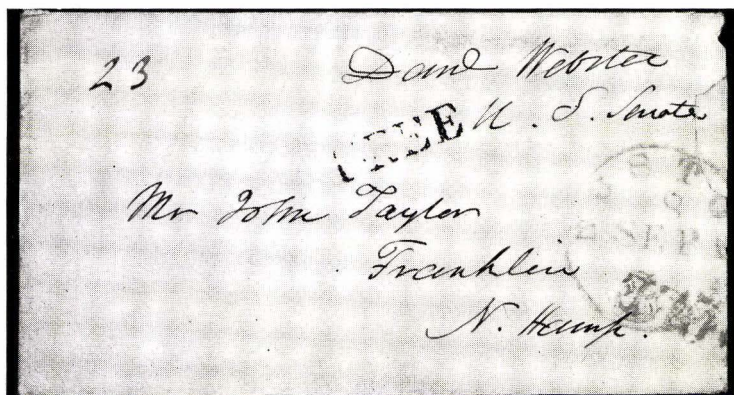 23
Danl Webster
U. S. Senate
FREE
Mr John Taylor
Franklin
N. Hamp.
SEP